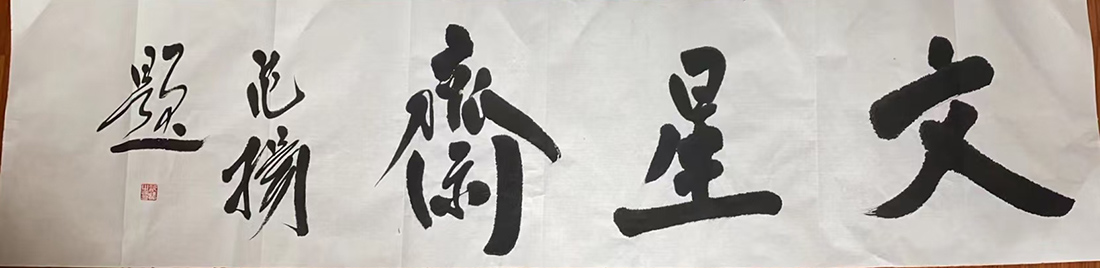 文星齋
范揚
題